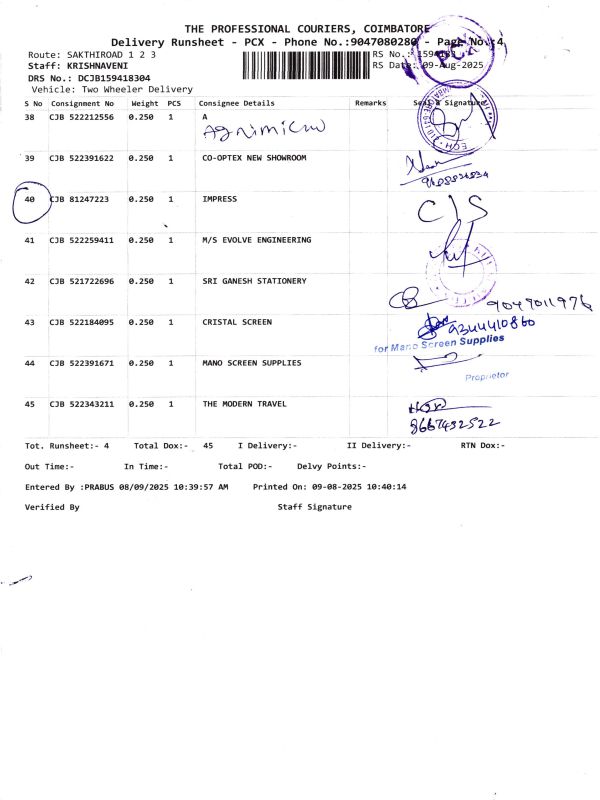 THE PROFESSIONAL COURIERS, COIMBATORE
Delivery Runsheet - PCX - Phone No.:9047080280 - Page No.:4
Route: SAKTHIROAD 1 2 3
RS No.:
Staff: KRISHNAVENI
RS Date: 09-Aug-2025
DRS No.: DCJB159418304
Vehicle: Two Wheeler Delivery
PCX
S No Consignment No Weight PCS Consignee Details Remarks Seal & Signature
38 CJB 522212556 0.250 1 A
Agnimicro
39 CJB 522391622 0.250 1 CO-OPTEX NEW SHOWROOM
40 CJB 81247223 0.250 1 IMPRESS
C/S
41 CJB 522259411 0.250 1 M/S EVOLVE ENGINEERING
42 CJB 521722696 0.250 1 SRI GANESH STATIONERY
9047011976
43 CJB 522184095 0.250 1 CRISTAL SCREEN
9344410860
for Mano Screen Supplies
44 CJB 522391671 0.250 1 MANO SCREEN SUPPLIES
Proprietor
45 CJB 522343211 0.250 1 THE MODERN TRAVEL
8667432522
Tot. Runsheet:- 4 Total Dox:- 45 I Delivery:- II Delivery:- RTN Dox:-
Out Time:- In Time:- Total POD:- Delvy Points:-
Entered By :PRABUS 08/09/2025 10:39:57 AM Printed On: 09-08-2025 10:40:14
Verified By Staff Signature